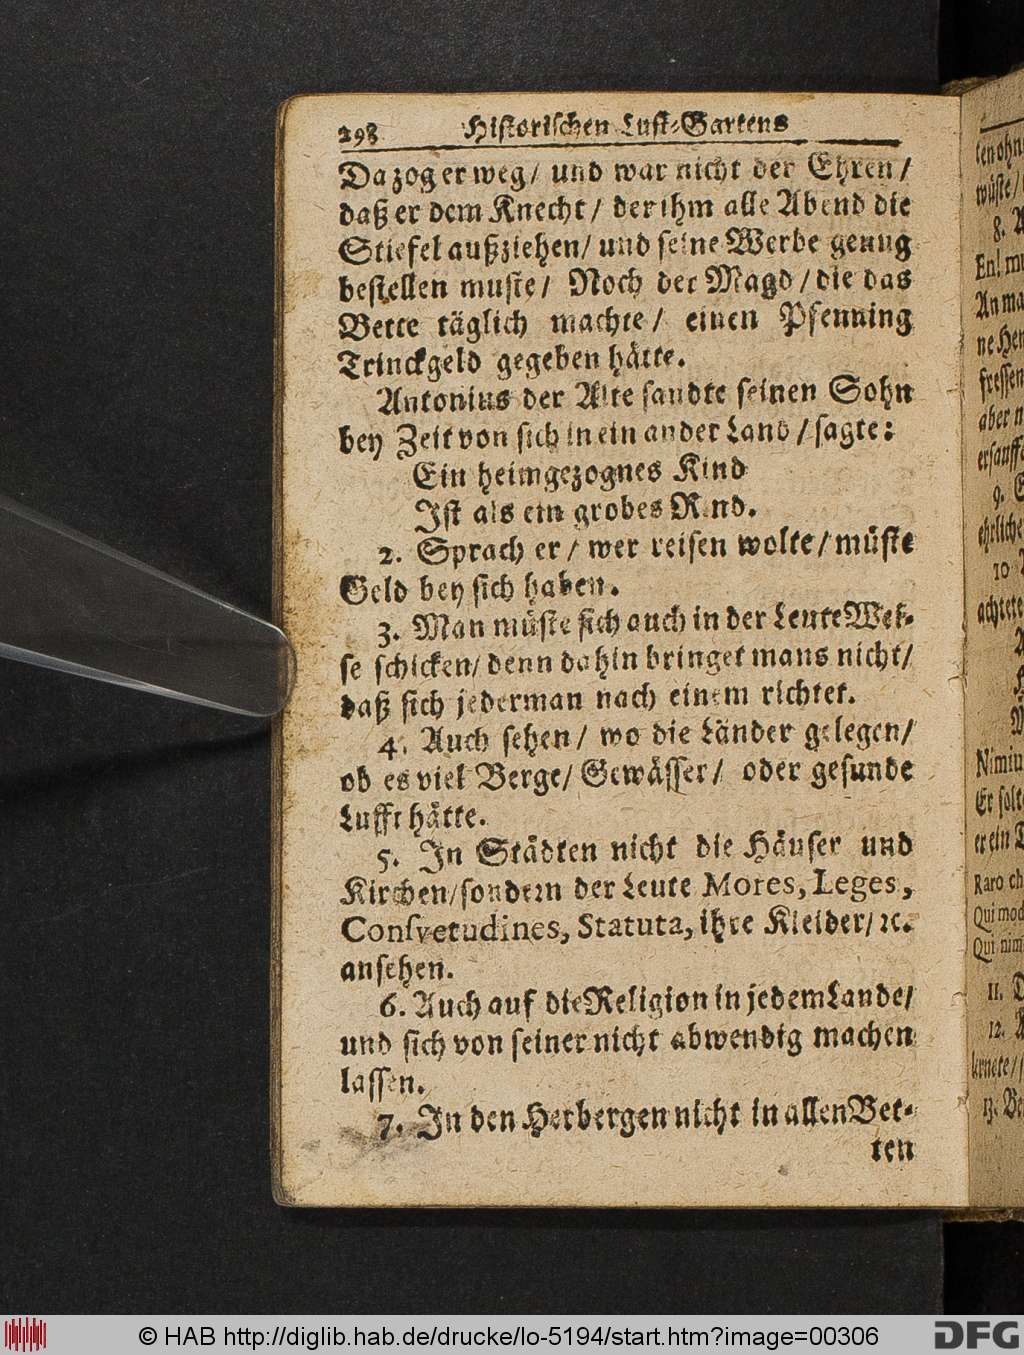 298 Historischen Lust-Gartens
Da zog er weg/ und war nicht der Ehren/
daß er dem Knecht/ der ihm alle Abend die
Stiefel außziehen/ und seine Werbe genug
bestellen muste/ Noch der Magd/ die das
Bette täglich machte/ einen Pfenning
Trinckgeld gegeben hätte.
Antonius der Alte sandte seinen Sohn
bey Zeit von sich in ein ander Land/ sagte:
Ein heimgezognes Kind
Ist als ein grobes Rind.
2. Sprach er/ wer reisen wolte/ müste
Geld bey sich haben.
3. Man müste sich auch in der Leute Wei-
se schicken/ denn dahin bringet mans nicht/
daß sich jederman nach einem richtet.
4. Auch sehen/ wo die Länder gelegen/
ob es viel Berge/ Gewässer/ oder gesunde
Lufft hätte.
5. In Städten nicht die Häuser und
Kirchen/ sondern der Leute Mores, Leges,
Consvetudines, Statuta, ihre Kleider/ ꝛc.
ansehen.
6. Auch auf die Religion in jedem Lande/
und sich von seiner nicht abwendig machen
lassen.
7. In den Herbergen nicht in allen Bet-
ten
8.
9.
10
11.
12.
13.
Raro
© HAB http://diglib.hab.de/drucke/lo-5194/start.htm?image=00306
DFG